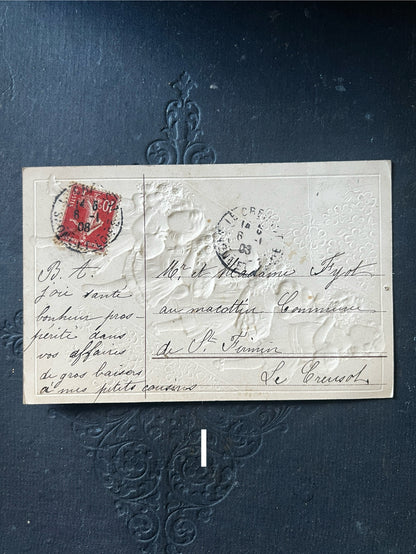 10
LE CREUSOT
14 5
6 -1
08
B. A.
joie santé
bonheur pros-
périté dans
vos affaires
de gros baisers
à mes petits cousins
Mr et Madame Fyot
au macottin Commune
de St Firmin
Le Creusot
I